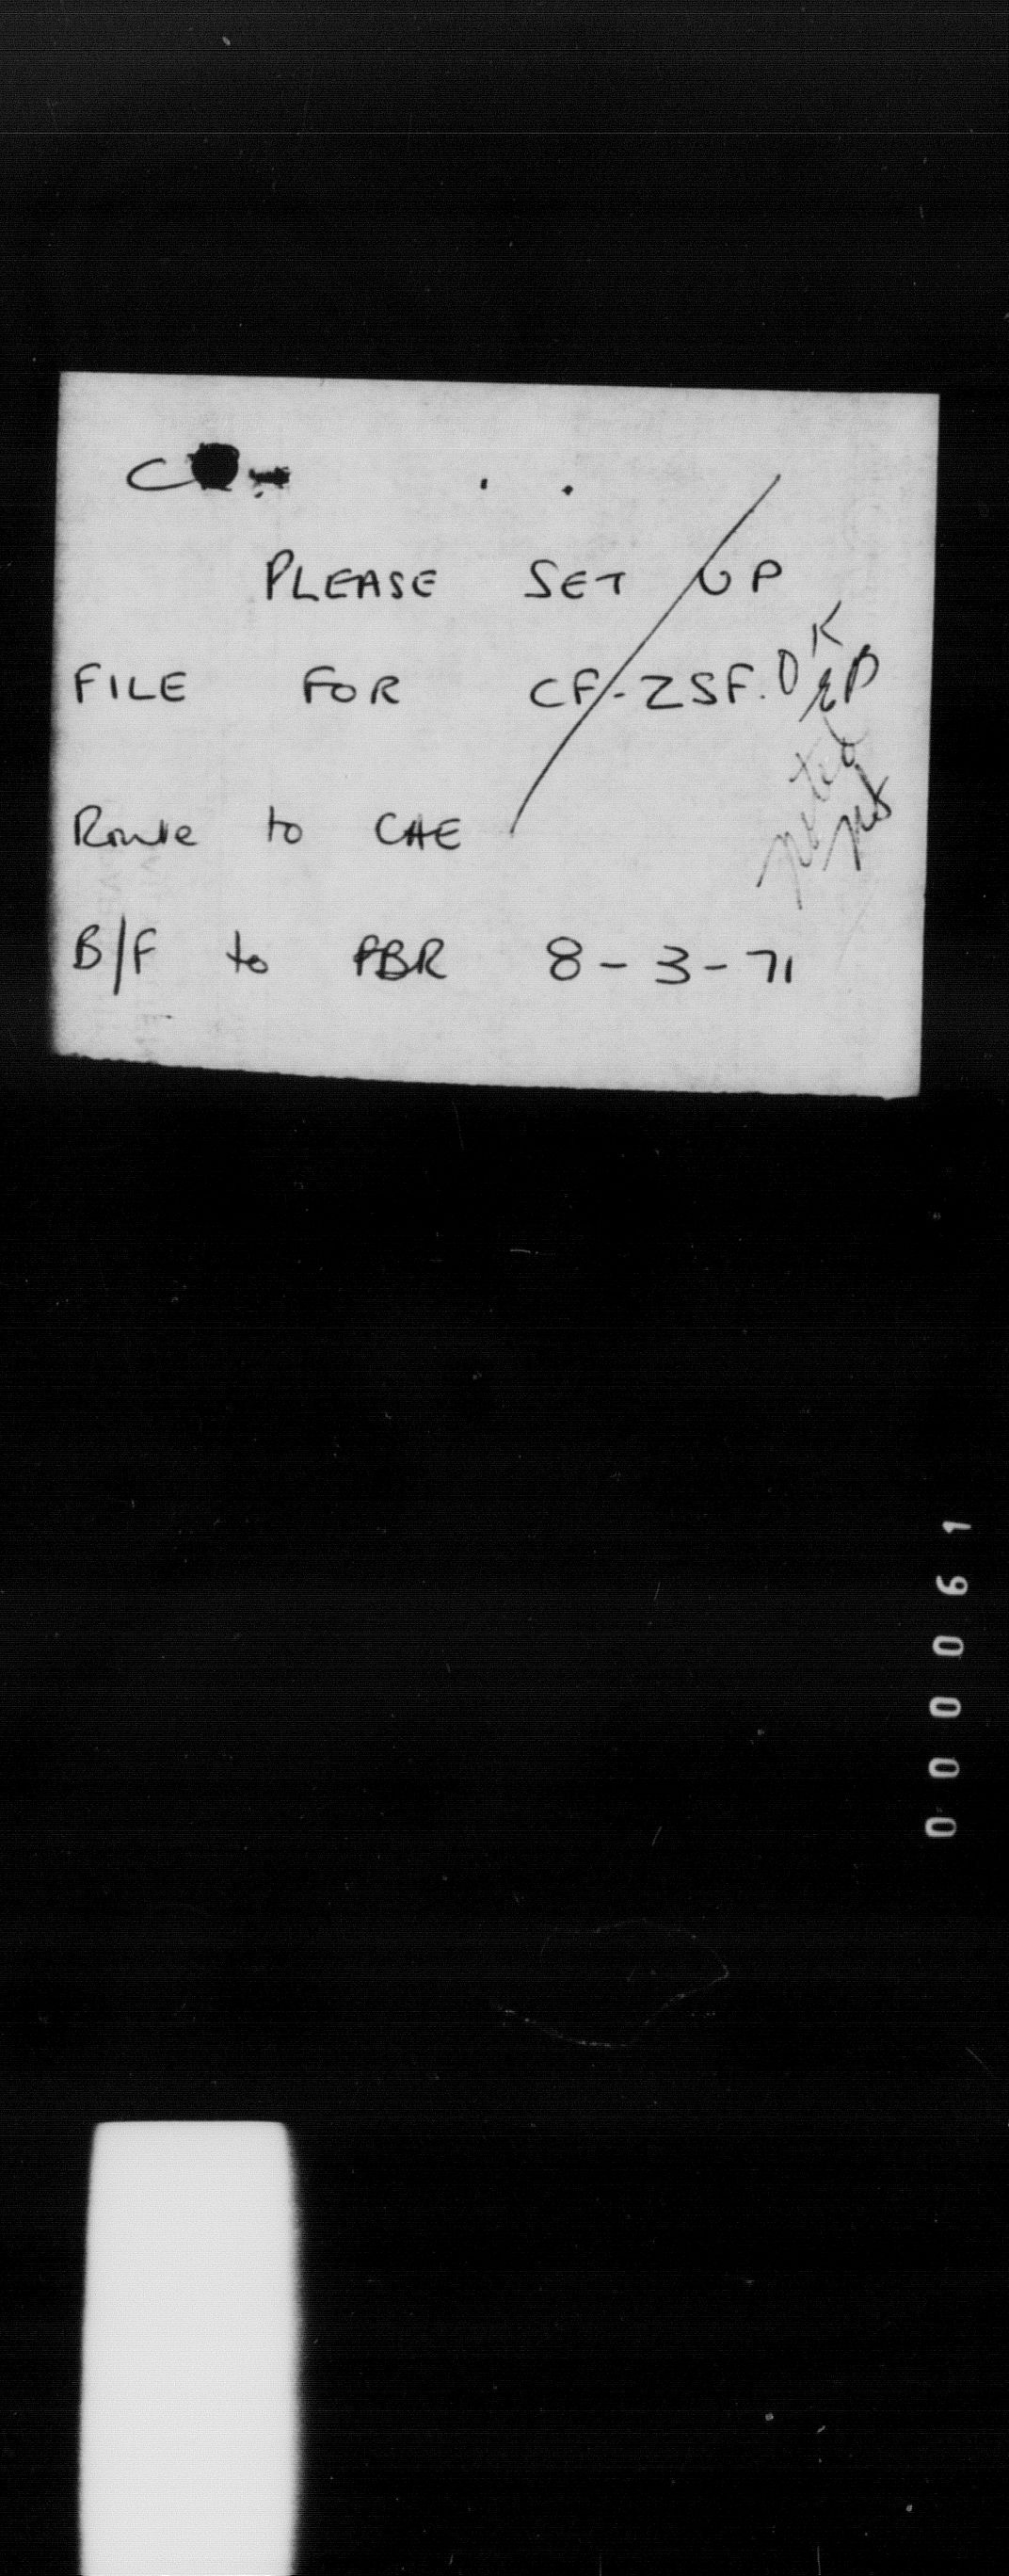 PLEASE SET UP
FILE FOR CF-ZSF. OK
Route to CAE
B/F to PBR 8-3-71
noted
000061